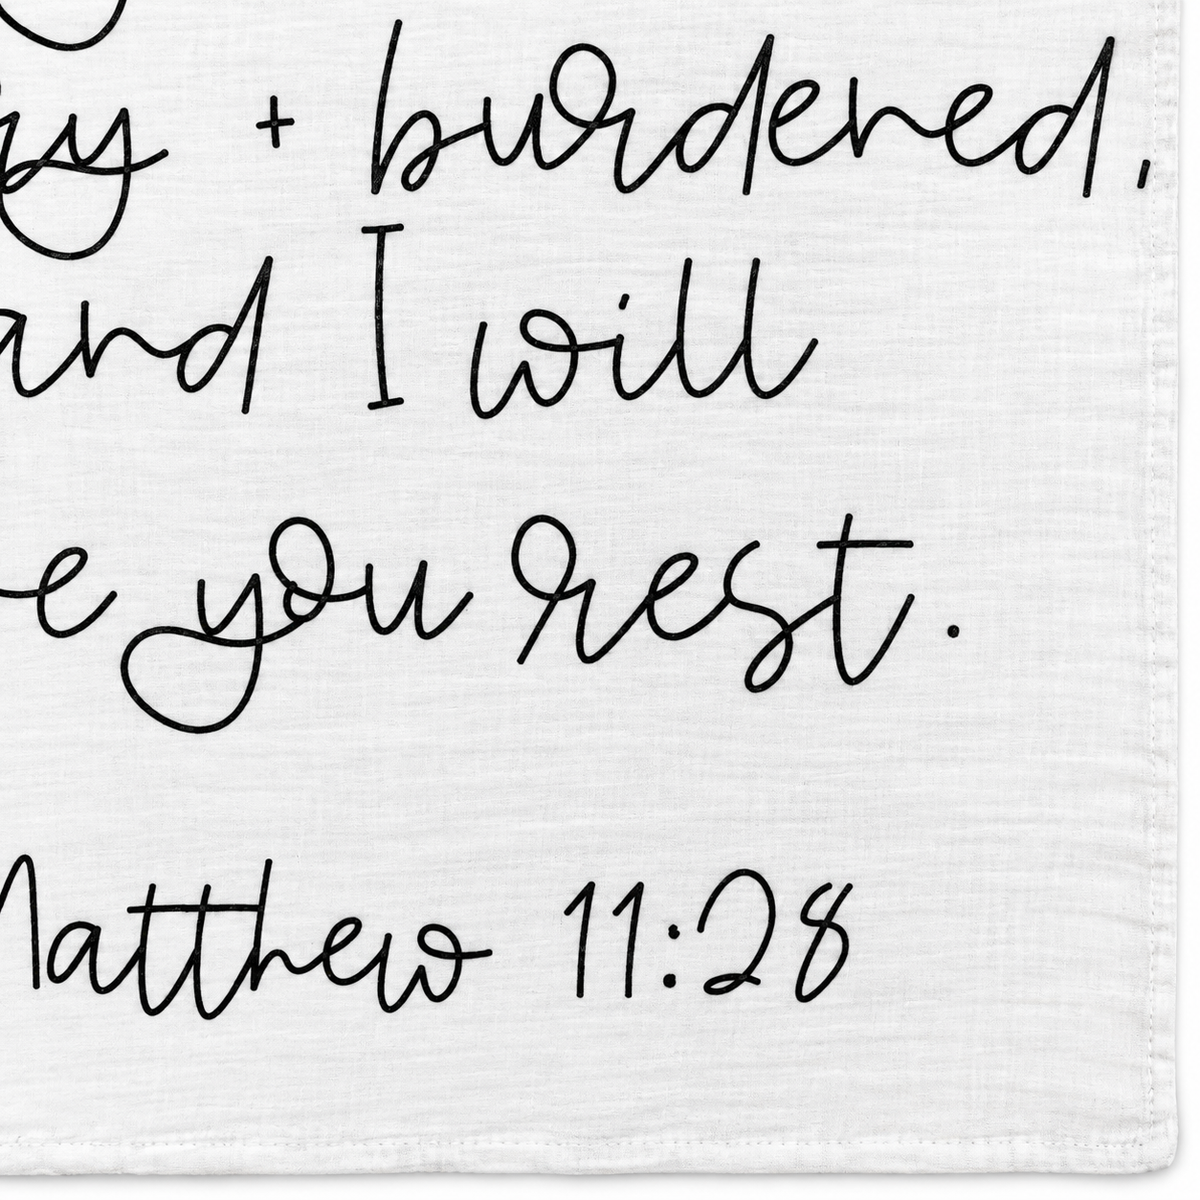 + burdened,
and I will
you rest.
Matthew 11:28